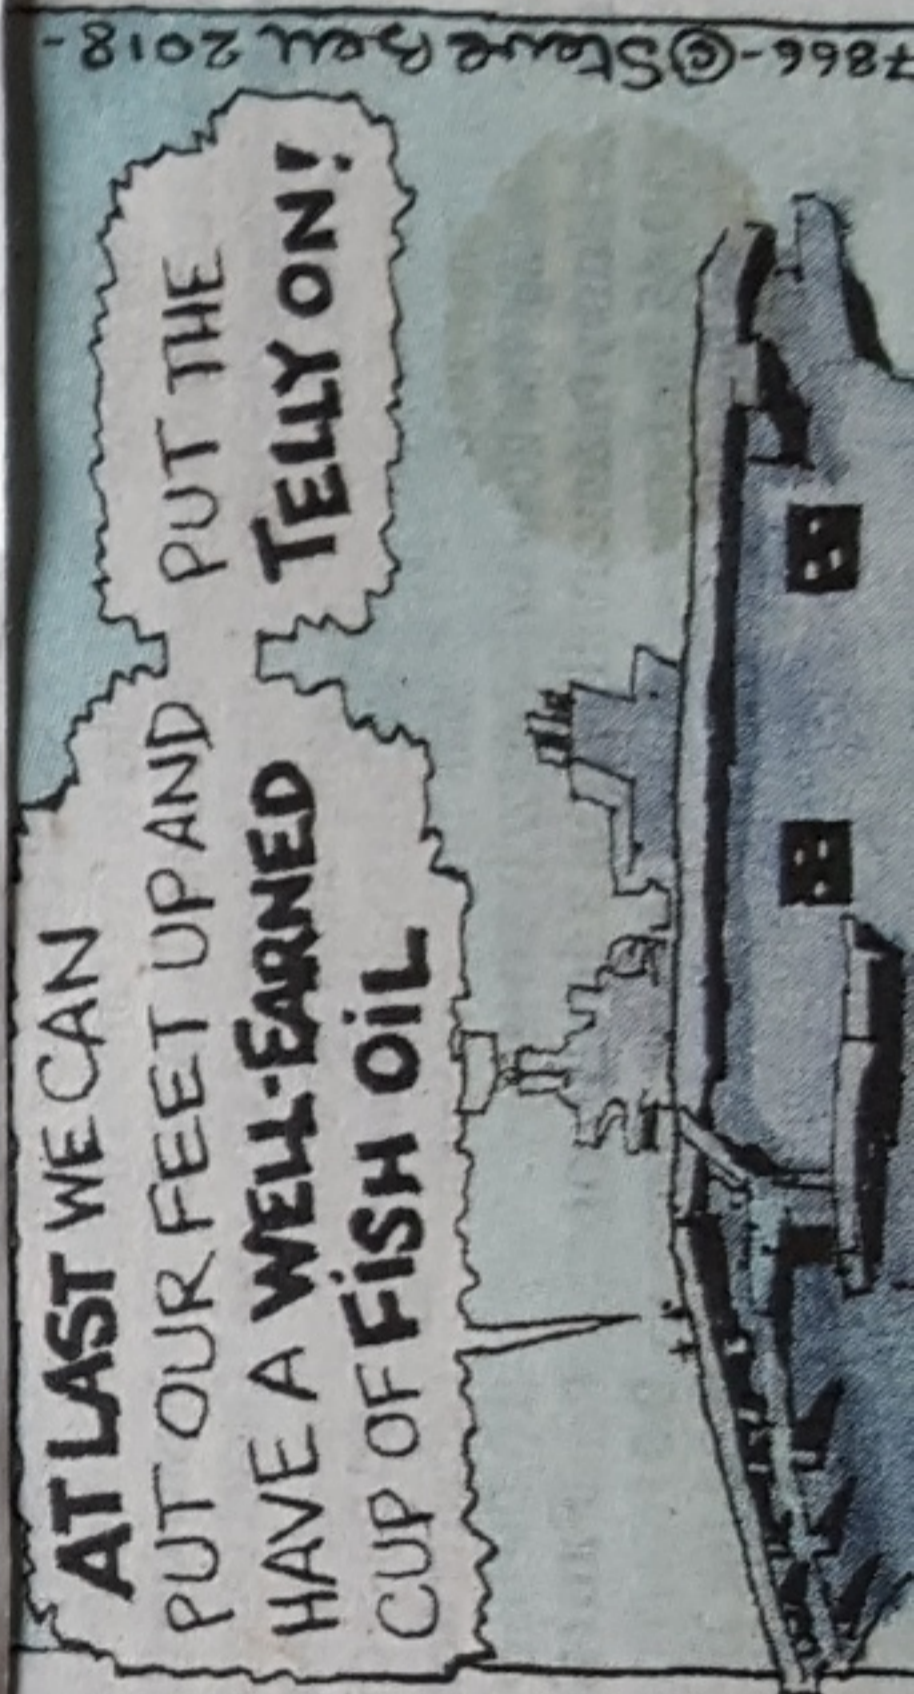 AT LAST WE CAN
PUT OUR FEET UP AND
HAVE A WELL-EARNED
CUP OF FISH OIL
PUT THE
TELLY ON!
7866-©Steve Bell 2018-